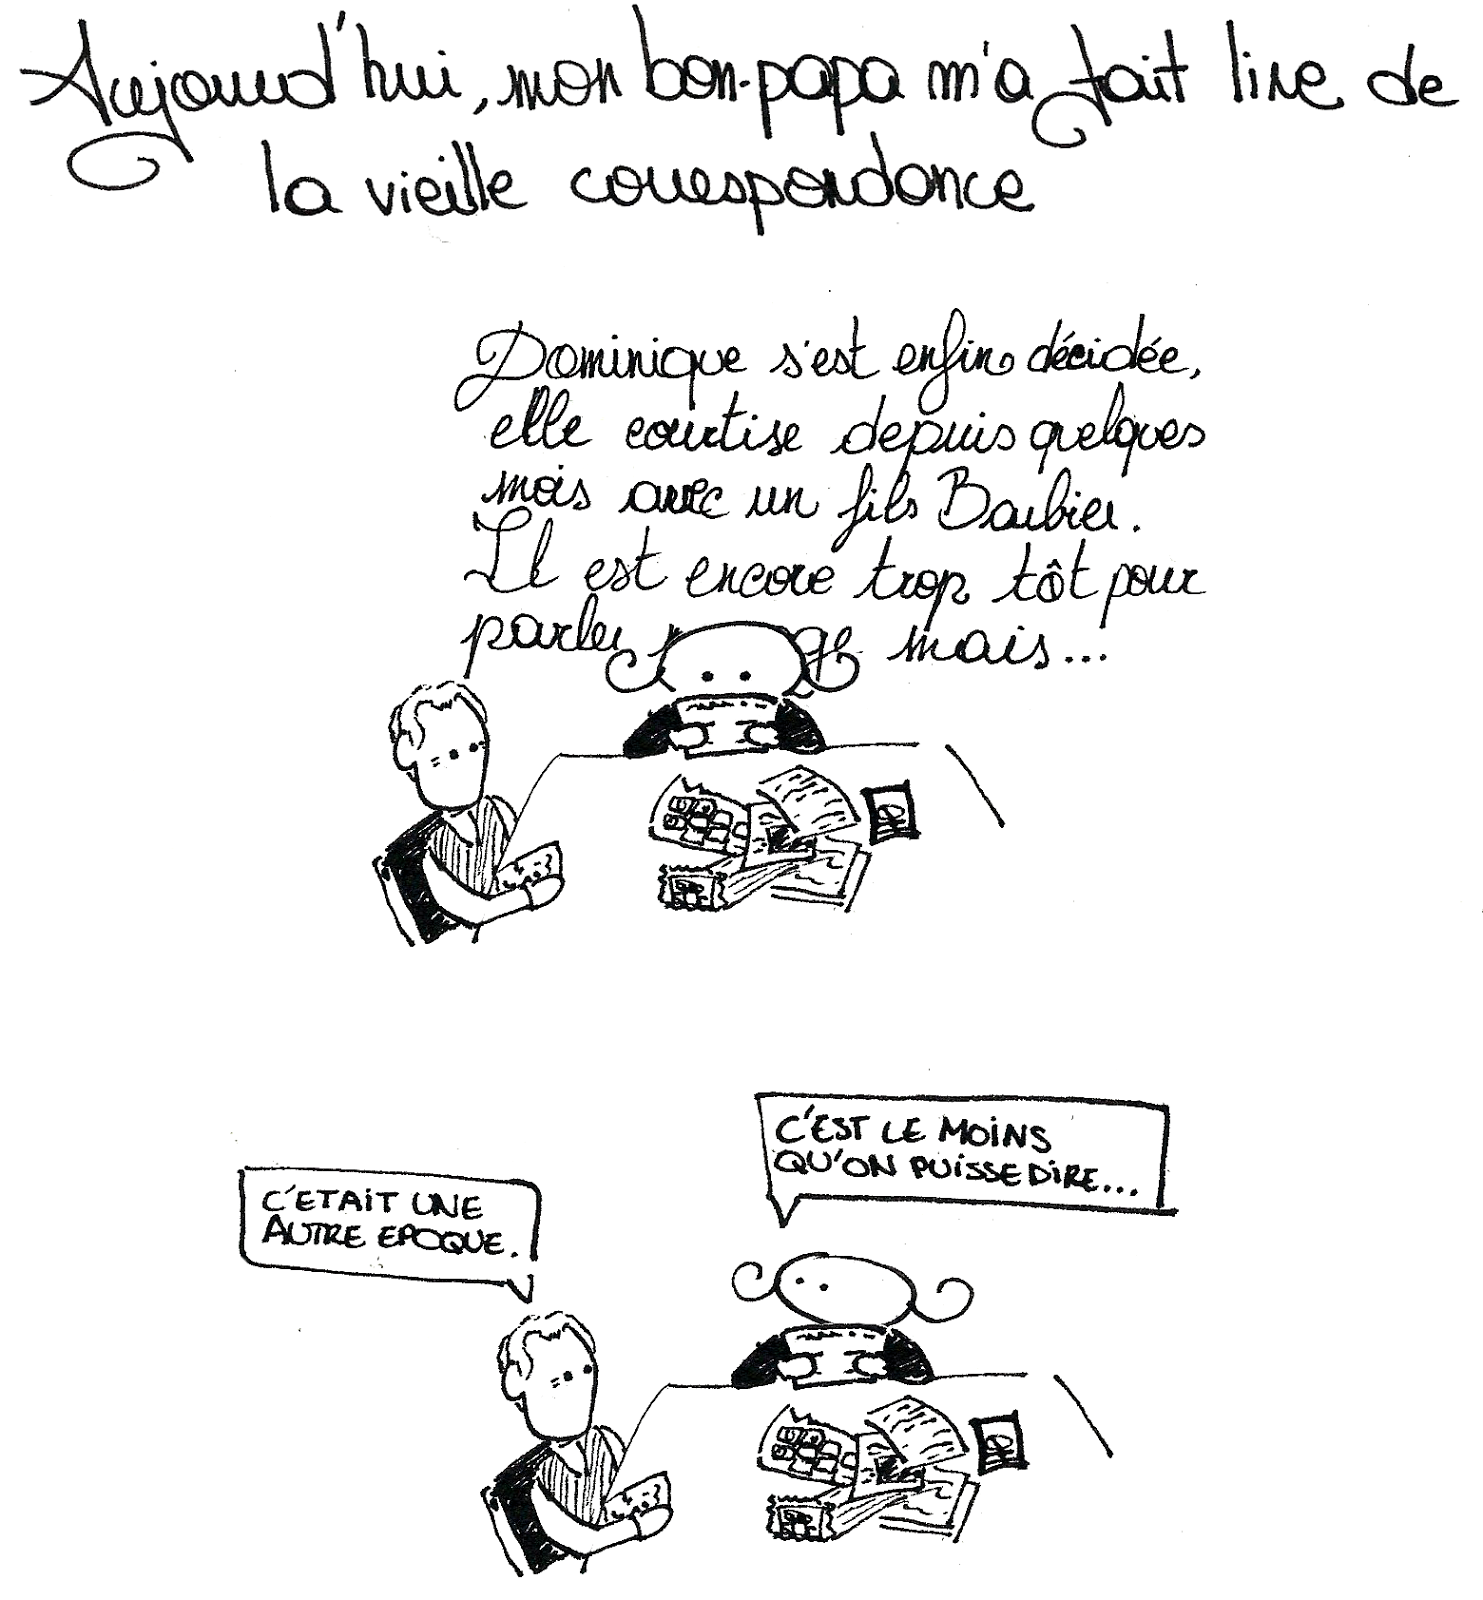 Aujourd'hui, mon bon-papa m'a fait lire de
la vieille correspondance
Dominique s'est enfin décidée,
elle courtise depuis quelques
mois avec un fils Barbier.
Il est encore trop tôt pour
parler mais...
C'EST LE MOINS
QU'ON PUISSE DIRE...
C'ETAIT UNE
AUTRE EPOQUE.